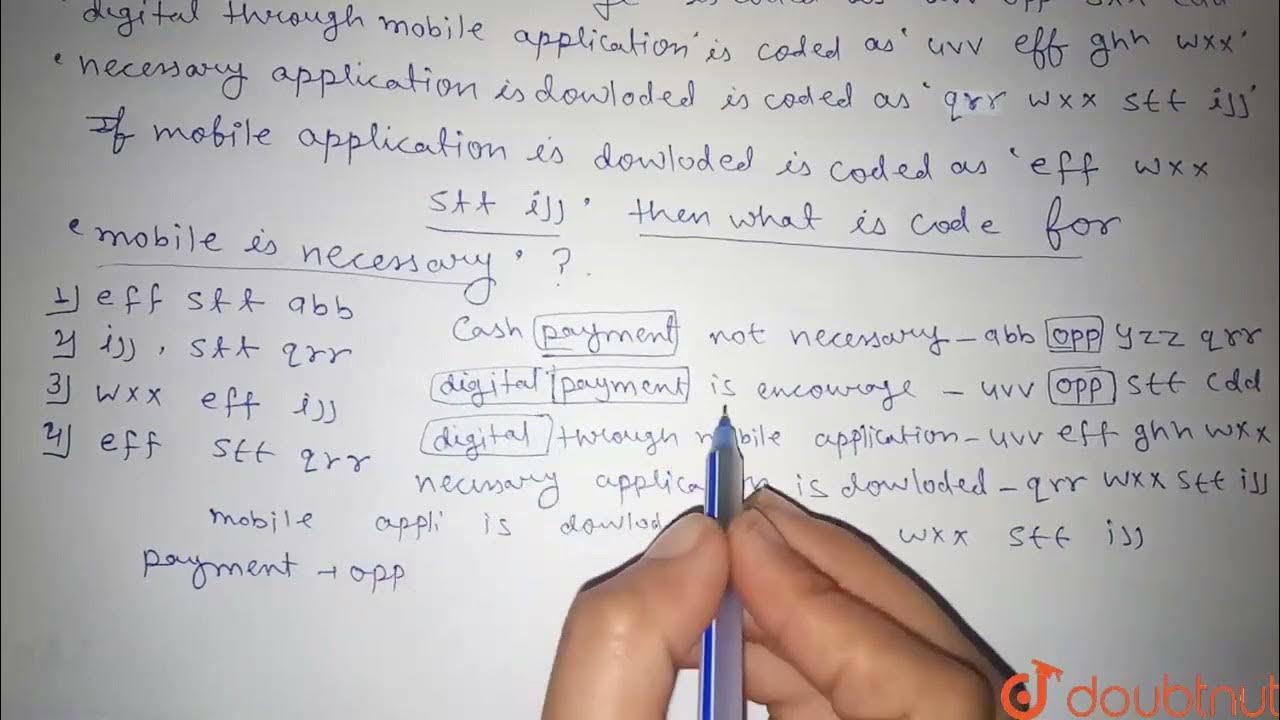 digital through mobile application' is coded as ' uvv eff ghh wxx'
' necessary application is dowloded is coded as ' qrr wxx stt ijj'
If mobile application is dowloded is coded as ' eff wxx
stt ijj ' then what is code for
' mobile is necessary ' ?
1) eff stt abb
2) ijj , stt qrr
3) wxx eff ijj
4) eff stt qrr
Cash payment not necessary - abb opp yzz qrr
digital payment is encourage - uvv opp stt cdd
digital through mobile application - uvv eff ghh wxx
necessary application is dowloded - qrr wxx stt ijj
mobile appli is dowlod wxx stt ijj
payment → opp
doubtnut